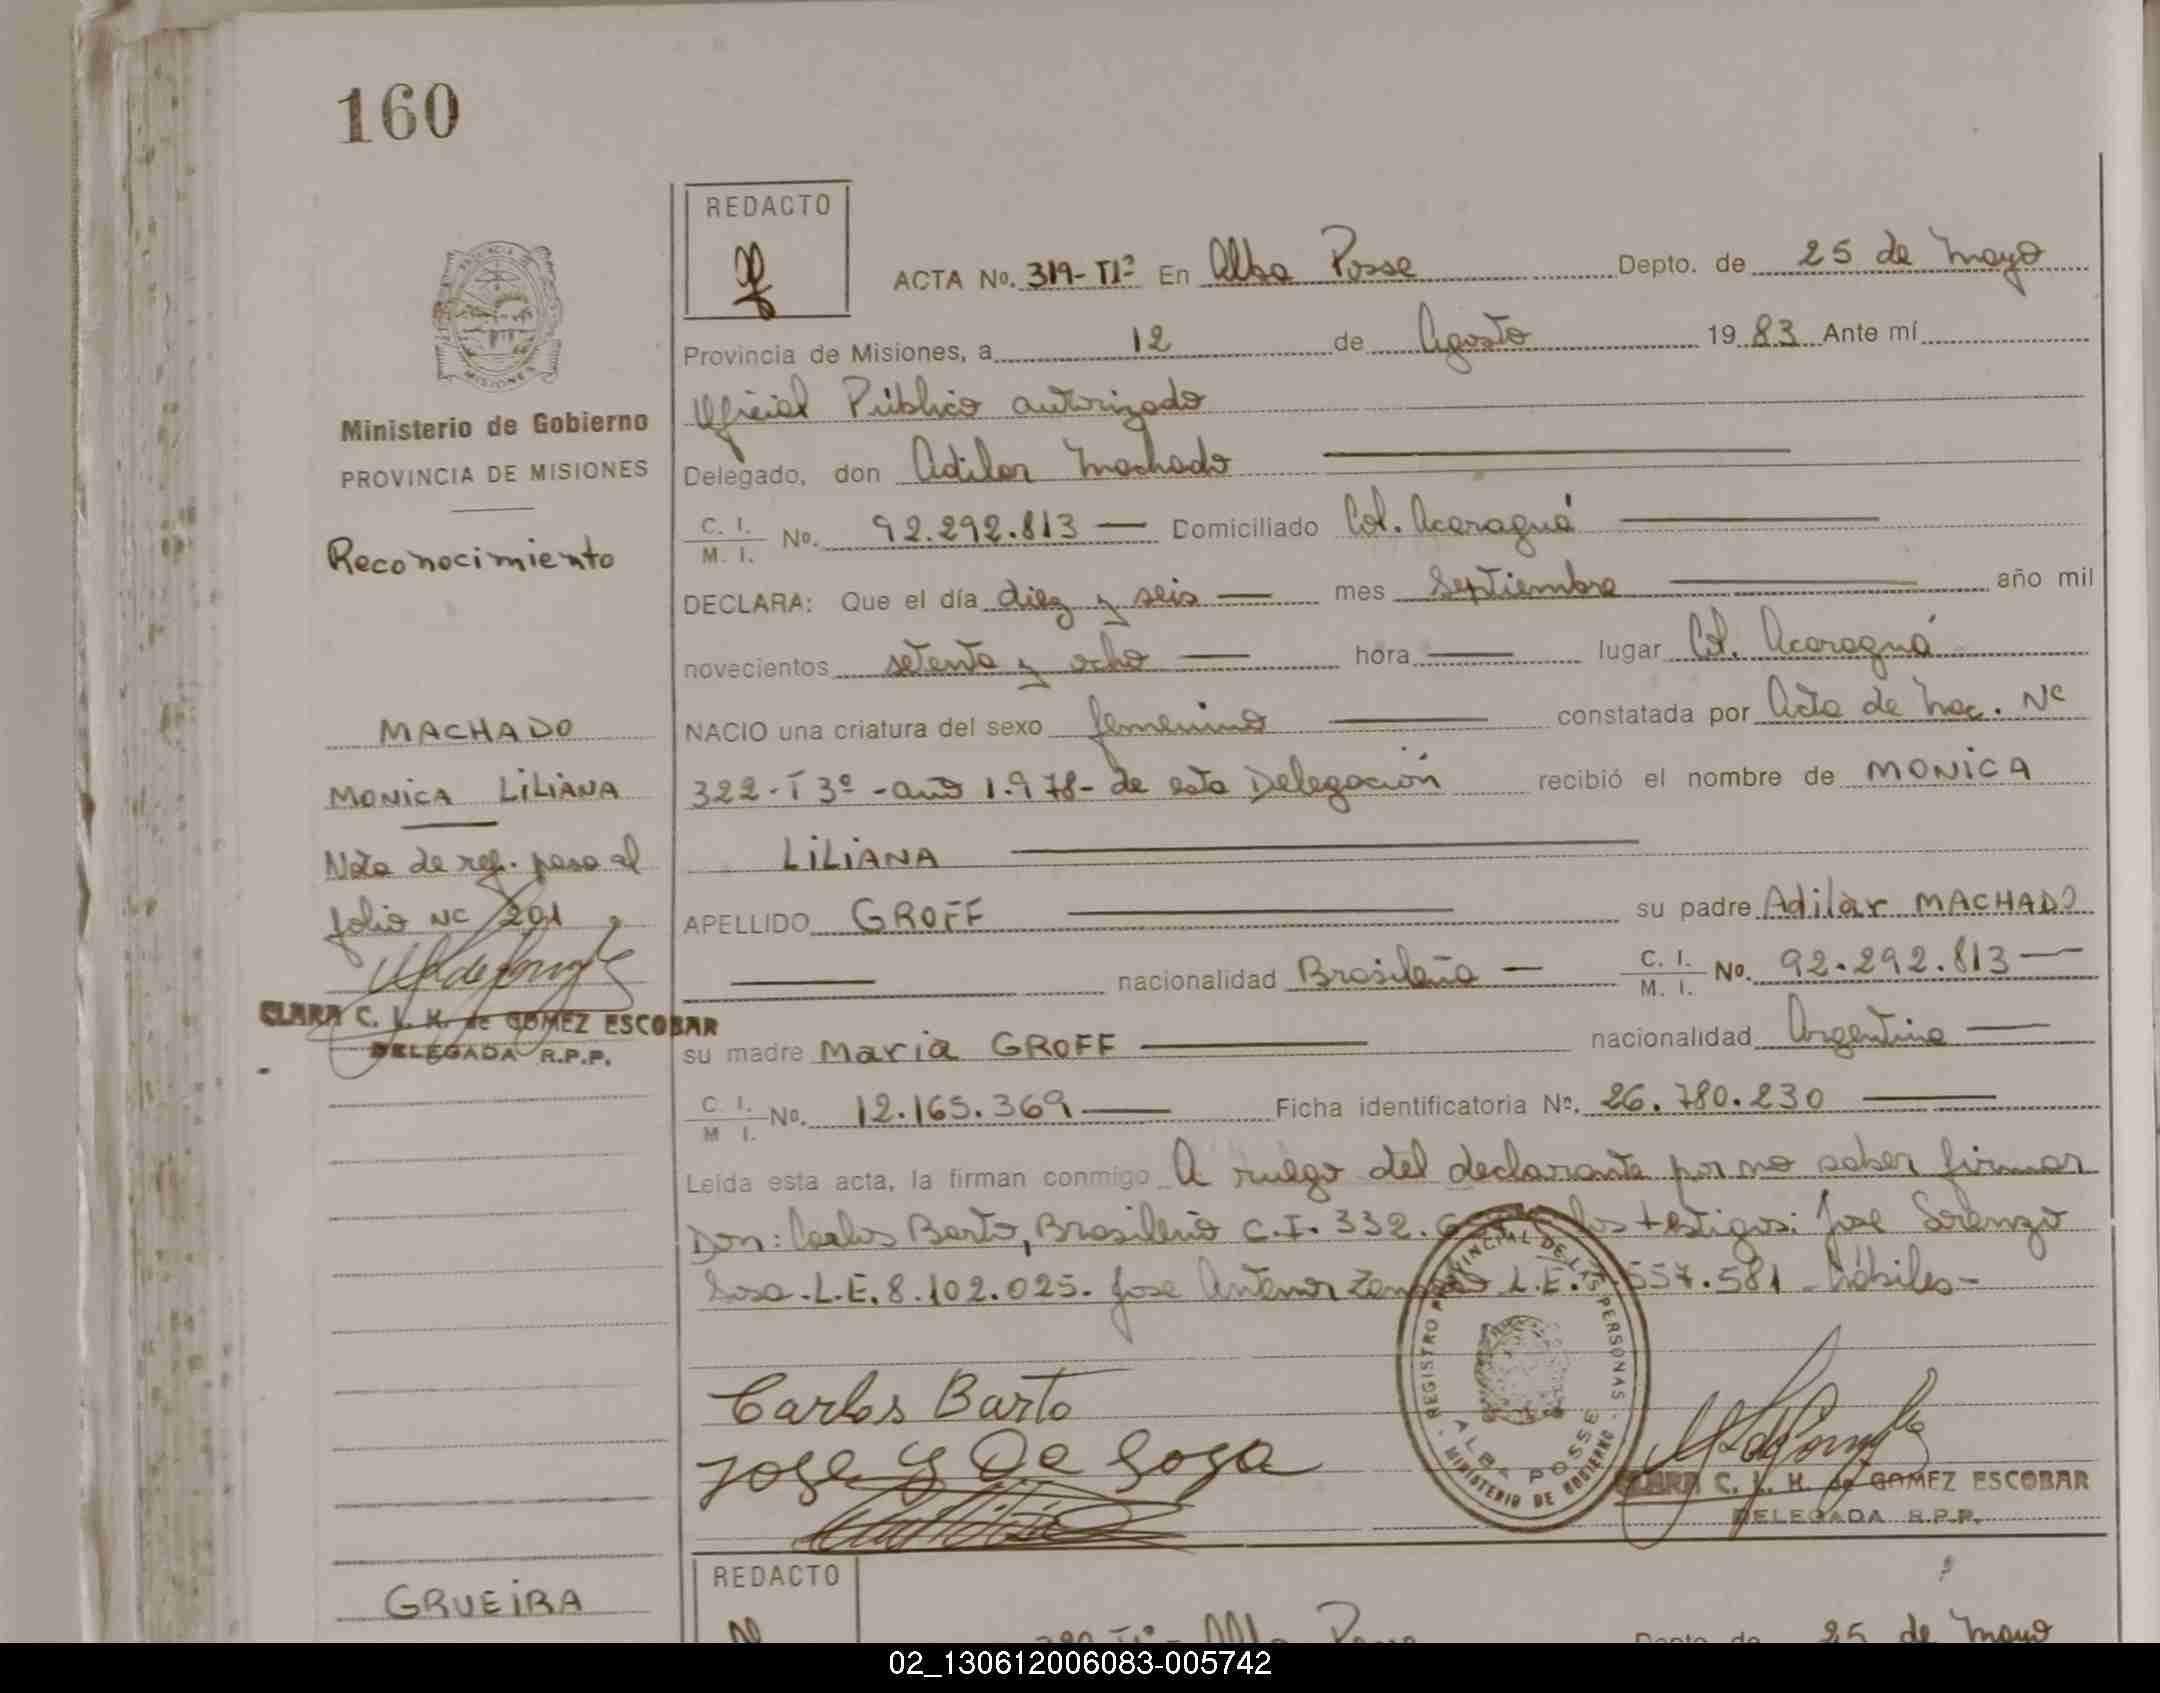 160
REDACTO
ACTA No. 319-TIº En Alba Posse Depto. de 25 de Mayo
Provincia de Misiones, a 12 de Agosto 1983 Ante mí
Oficial Público autorizado
Delegado, don Adilar Machado
C. I.
M. I. No. 92.292.813 Domiciliado Col. Acaraguá
DECLARA: Que el día diez y seis mes Septiembre año mil
novecientos setenta y ocho hora lugar Col. Acaraguá
NACIO una criatura del sexo femenino constatada por Acta de Nac. Nº
322-T3º-año 1.978-de esta Delegación recibió el nombre de MONICA
LILIANA
APELLIDO GROFF su padre Adilar MACHADO
nacionalidad Brasileña C. I.
M. I. No. 92.292.813
su madre Maria GROFF nacionalidad Argentina
C. I.
M I. No. 12.165.369 Ficha identificatoria Nº. 26.780.230
Leída esta acta, la firman conmigo A ruego del declarante por no saber firmar
Don: Carlos Barto, Brasileño C.I. 332. los testigos: Jose Lorenzo
Sosa.L.E.8.102.025. Jose Antenor L.E. 557.581 hábiles-
Carlos Barto
Jose De Sosa
REGISTRO PROVINCIAL DE LAS PERSONAS
ALBA POSSE
MINISTERIO DE GOBIERNO
CLARA C. L. K. de GOMEZ ESCOBAR
DELEGADA R.P.P.
PROVINCIA DE
MISIONES
Ministerio de Gobierno
PROVINCIA DE MISIONES
Reconocimiento
MACHADO
MONICA LILIANA
Nota de ref. pasa al
folio Nº 201
CLARA C. L. K. de GOMEZ ESCOBAR
DELEGADA R.P.P.
GRUEIRA
REDACTO
Alba Posse Depto. de 25 de Mayo
02_130612006083-005742